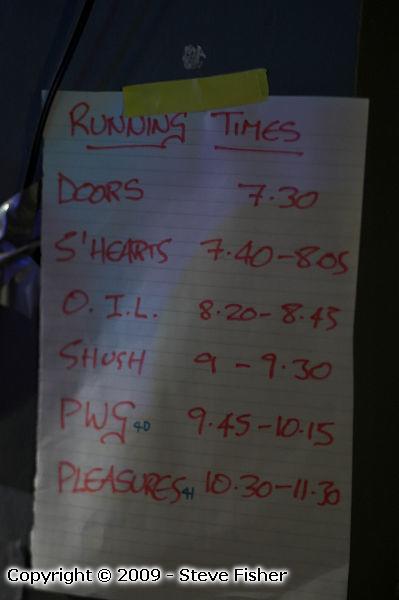 RUNNING TIMES
DOORS 7.30
S'HEARTS 7.40-8.05
O.I.L. 8.20-8.45
SHUSH 9-9.30
PWG 40 9.45-10.15
PLEASURES 41 10.30-11.30
Copyright © 2009 - Steve Fisher